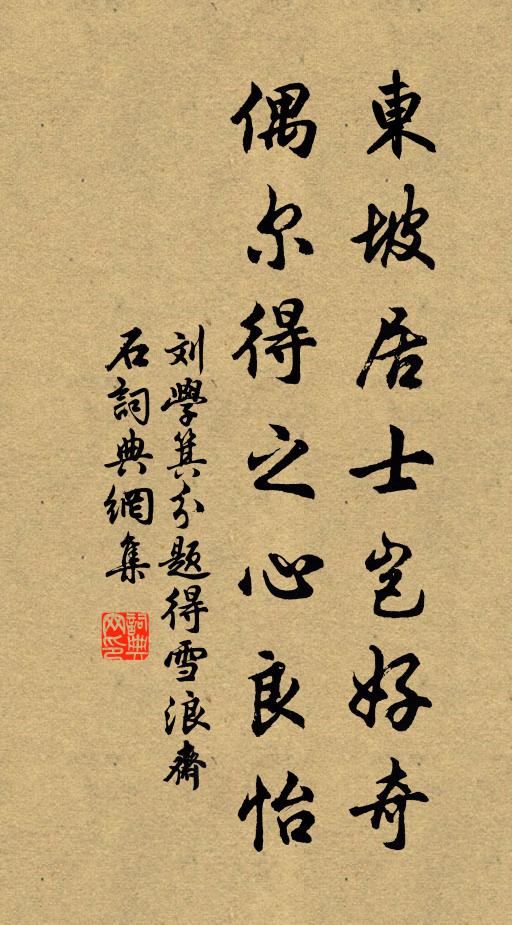 東坡居士豈好奇
偶尔得之心良怡
刘學箕分題得雪浪齋
石詞典網集
詞典網印